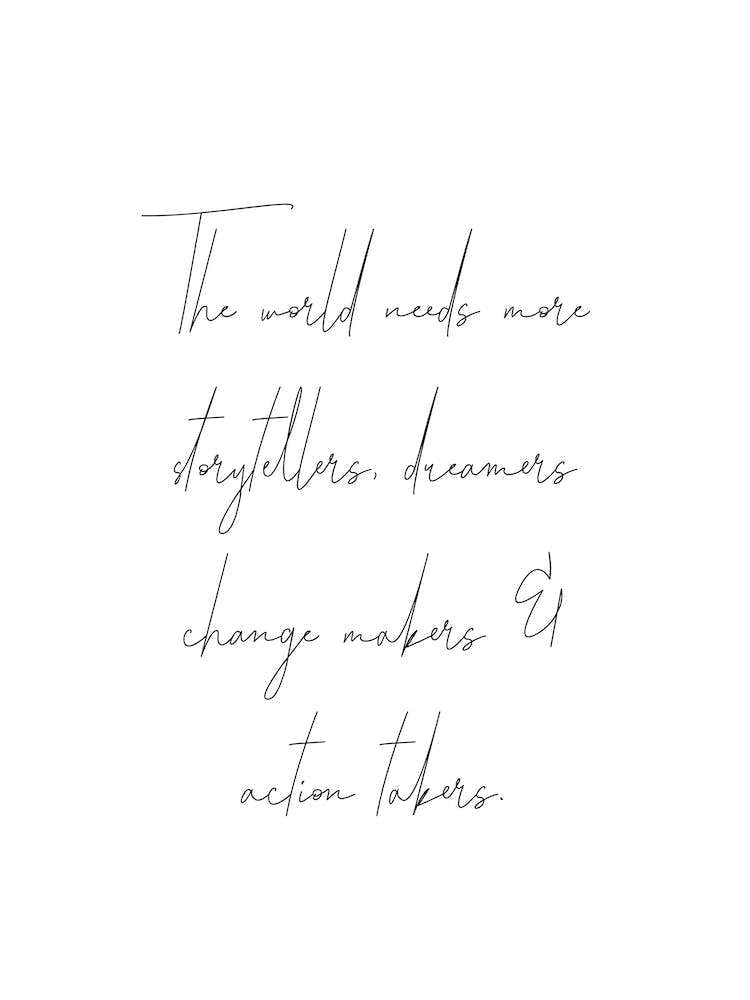 The world needs more
storytellers, dreamers
change makers &
action takers.